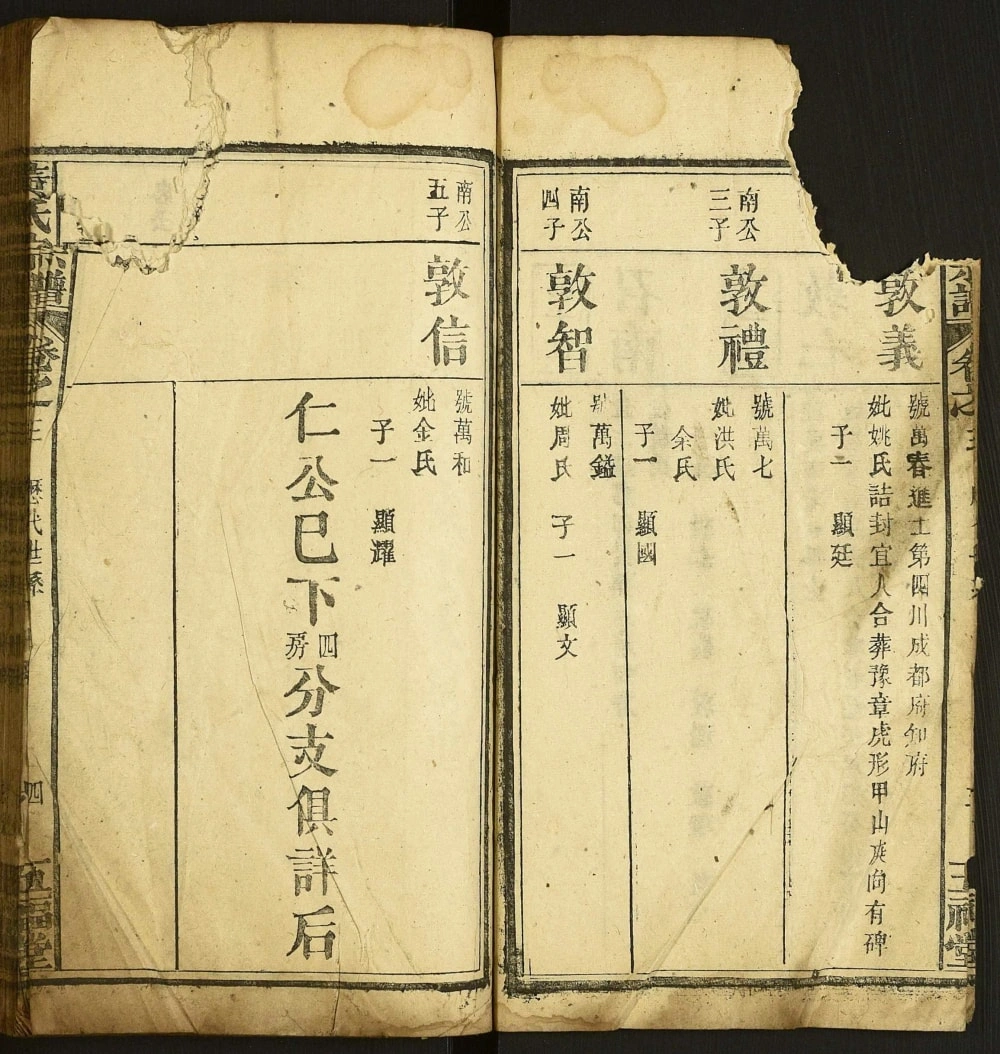 敦義
號萬春進士第四川成都府知府
妣姚氏誥封宜人合葬豫章虎形甲山庚向有碑
子二 顯廷
南公
三子
敦禮
號萬七
妣洪氏
余氏
子一 顯國
南公
四子
敦智
號萬鎰
妣周氏 子一 顯文
南公
五子
敦信
號萬和
妣金氏
子一 顯耀
仁公巳下四房分支俱詳后
氏宗譜 卷之三 歷代世系 四 五福堂